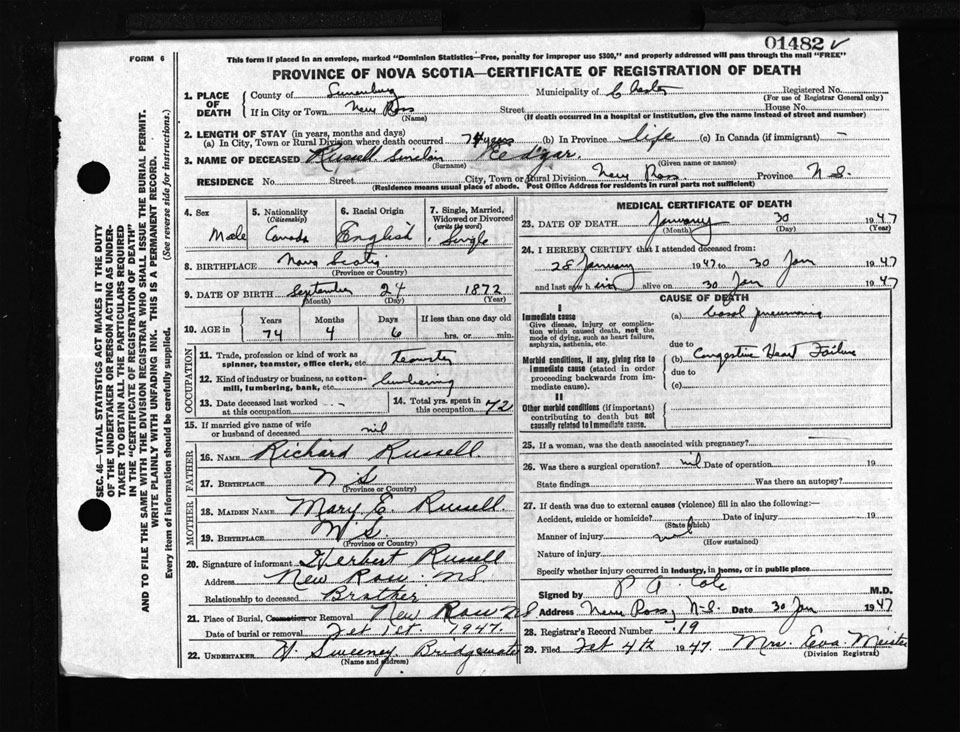 01482 ✓
FORM 6
This form if placed in an envelope, marked "Dominion Statistics—Free, penalty for improper use $300," and properly addressed will pass through the mail "FREE"
PROVINCE OF NOVA SCOTIA—CERTIFICATE OF REGISTRATION OF DEATH
SEC. 46—VITAL STATISTICS ACT MAKES IT THE DUTY
OF THE UNDERTAKER OR PERSON ACTING AS UNDER-
TAKER TO OBTAIN ALL THE PARTICULARS REQUIRED
IN THE "CERTIFICATE OF REGISTRATION OF DEATH"
AND TO FILE THE SAME WITH THE DIVISION REGISTRAR WHO SHALL ISSUE THE BURIAL PERMIT.
WRITE PLAINLY WITH UNFADING INK. THIS IS A PERMANENT RECORD.
Every item of information should be carefully supplied. (See reverse side for instructions.)
1. PLACE OF DEATH
County of Lunenburg Municipality of Chester Registered No.
(For use of Registrar General only)
If in City or Town New Ross Street House No.
(Name) (If death occurred in a hospital or institution, give the name instead of street and number)
2. LENGTH OF STAY (in years, months and days)
(a) In City, Town or Rural Division where death occurred 74 years (b) In Province life (c) In Canada (if immigrant) –
3. NAME OF DECEASED Russell Edgar
(Surname) (Given name or names)
RESIDENCE No. Street City, Town or Rural Division New Ross Province N-S.
(Residence means usual place of abode. Post Office Address for residents in rural parts not sufficient)
4. Sex
Male
5. Nationality
(Citizenship)
Canada
6. Racial Origin
English
7. Single, Married, Widowed or Divorced
(write the word)
Single
8. BIRTHPLACE Nova Scotia
(Province or Country)
9. DATE OF BIRTH September 24 1872
(Month) (Day) (Year)
10. AGE in Years Months Days If less than one day old
74 4 6 hrs. or min.
OCCUPATION
11. Trade, profession or kind of work as
spinner, teamster, office clerk, etc. teamster
12. Kind of industry or business, as cotton-
mill, lumbering, bank, etc. lumbering
13. Date deceased last worked
at this occupation
14. Total yrs. spent in
this occupation 72
15. If married give name of wife
or husband of deceased nil
FATHER
16. NAME Richard Russell.
17. BIRTHPLACE N S
(Province or Country)
MOTHER
18. MAIDEN NAME Mary E. Russell.
19. BIRTHPLACE N S.
(Province or Country)
20. Signature of informant Herbert Russell
Address New Ross. NS
Relationship to deceased Brother
21. Place of Burial, Cremation or Removal New Ross NS
Date of burial or removal Feb 1st. 1947.
22. UNDERTAKER Sweeney Bridgewater
(Name and address)
MEDICAL CERTIFICATE OF DEATH
23. DATE OF DEATH January 30 1947
(Month) (Day) (Year)
24. I HEREBY CERTIFY that I attended deceased from:
28 January 1947 to 30 Jan 1947
and last saw him alive on 30 Jan 1947
CAUSE OF DEATH
I
Immediate cause
Give disease, injury or complica-
tion which caused death, not the
mode of dying, such as heart failure,
asphyxia, asthenia, etc.
(a) basal pneumonia
due to
Morbid conditions, if any, giving rise to
immediate cause (stated in order
proceeding backwards from im-
mediate cause).
(b) Congestive Heart Failure
due to
(c)
II
Other morbid conditions (if important)
contributing to death but not
causally related to immediate cause.
25. If a woman, was the death associated with pregnancy?
26. Was there a surgical operation? nil Date of operation 19
State findings Was there an autopsy?
27. If death was due to external causes (violence) fill in also the following:—
Accident, suicide or homicide? Date of injury 19
(State which)
Manner of injury nil
(How sustained)
Nature of injury
Specify whether injury occurred in industry, in home, or in public place
Signed by P A. Cole M.D.
Address New Ross, N-S. Date 30 Jan 1947
28. Registrar's Record Number 19
29. Filed Feb 4th 1947 Mrs. Eva Meister
(Division Registrar)